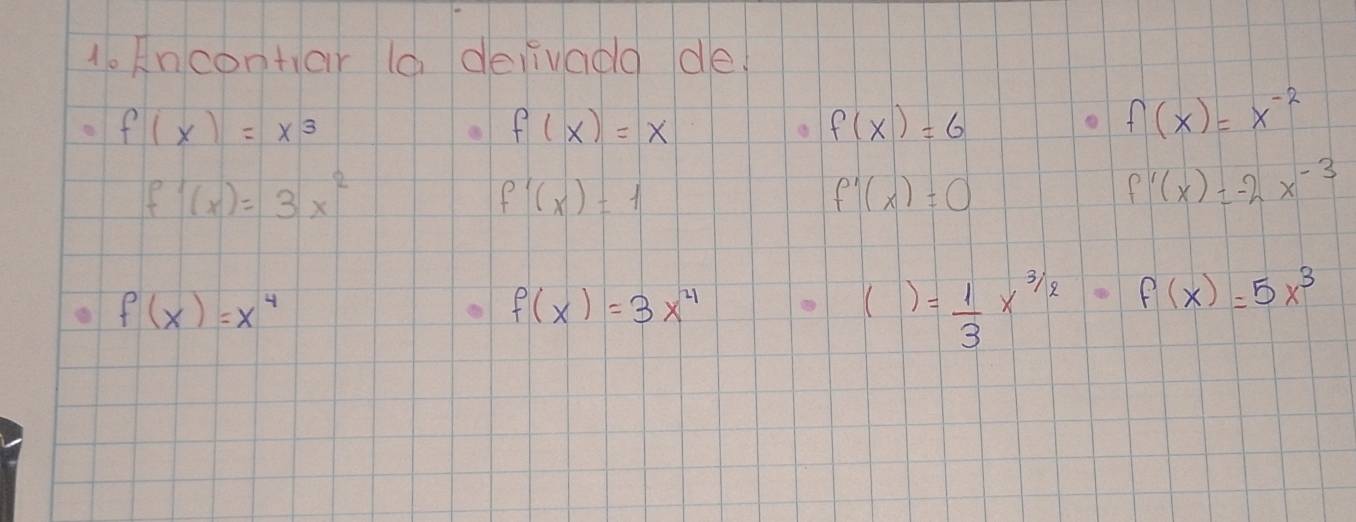 1. Encontrar la derivada de:
• f(x) = x³ • f(x) = x • f(x) = 6 • f(x) = x⁻²
f'(x) = 3x² f'(x) = 1 f'(x) = 0 f'(x) = -2x⁻³
• f(x) = x⁴ • f(x) = 3x⁴ • ( ) = 1/3 x^(3/2) • f(x) = 5x³